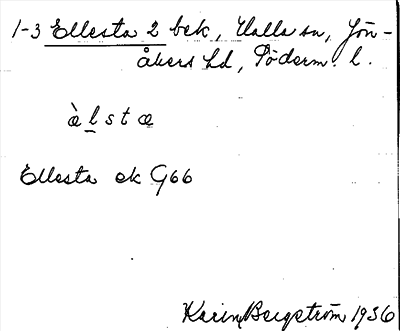 1-3 Ellesta 2 bek, Halla sn, Jön-
åkers hd, Söderm. l.
ὰ l s t æ
Ellesta ek G66
Karin Bergström 1936